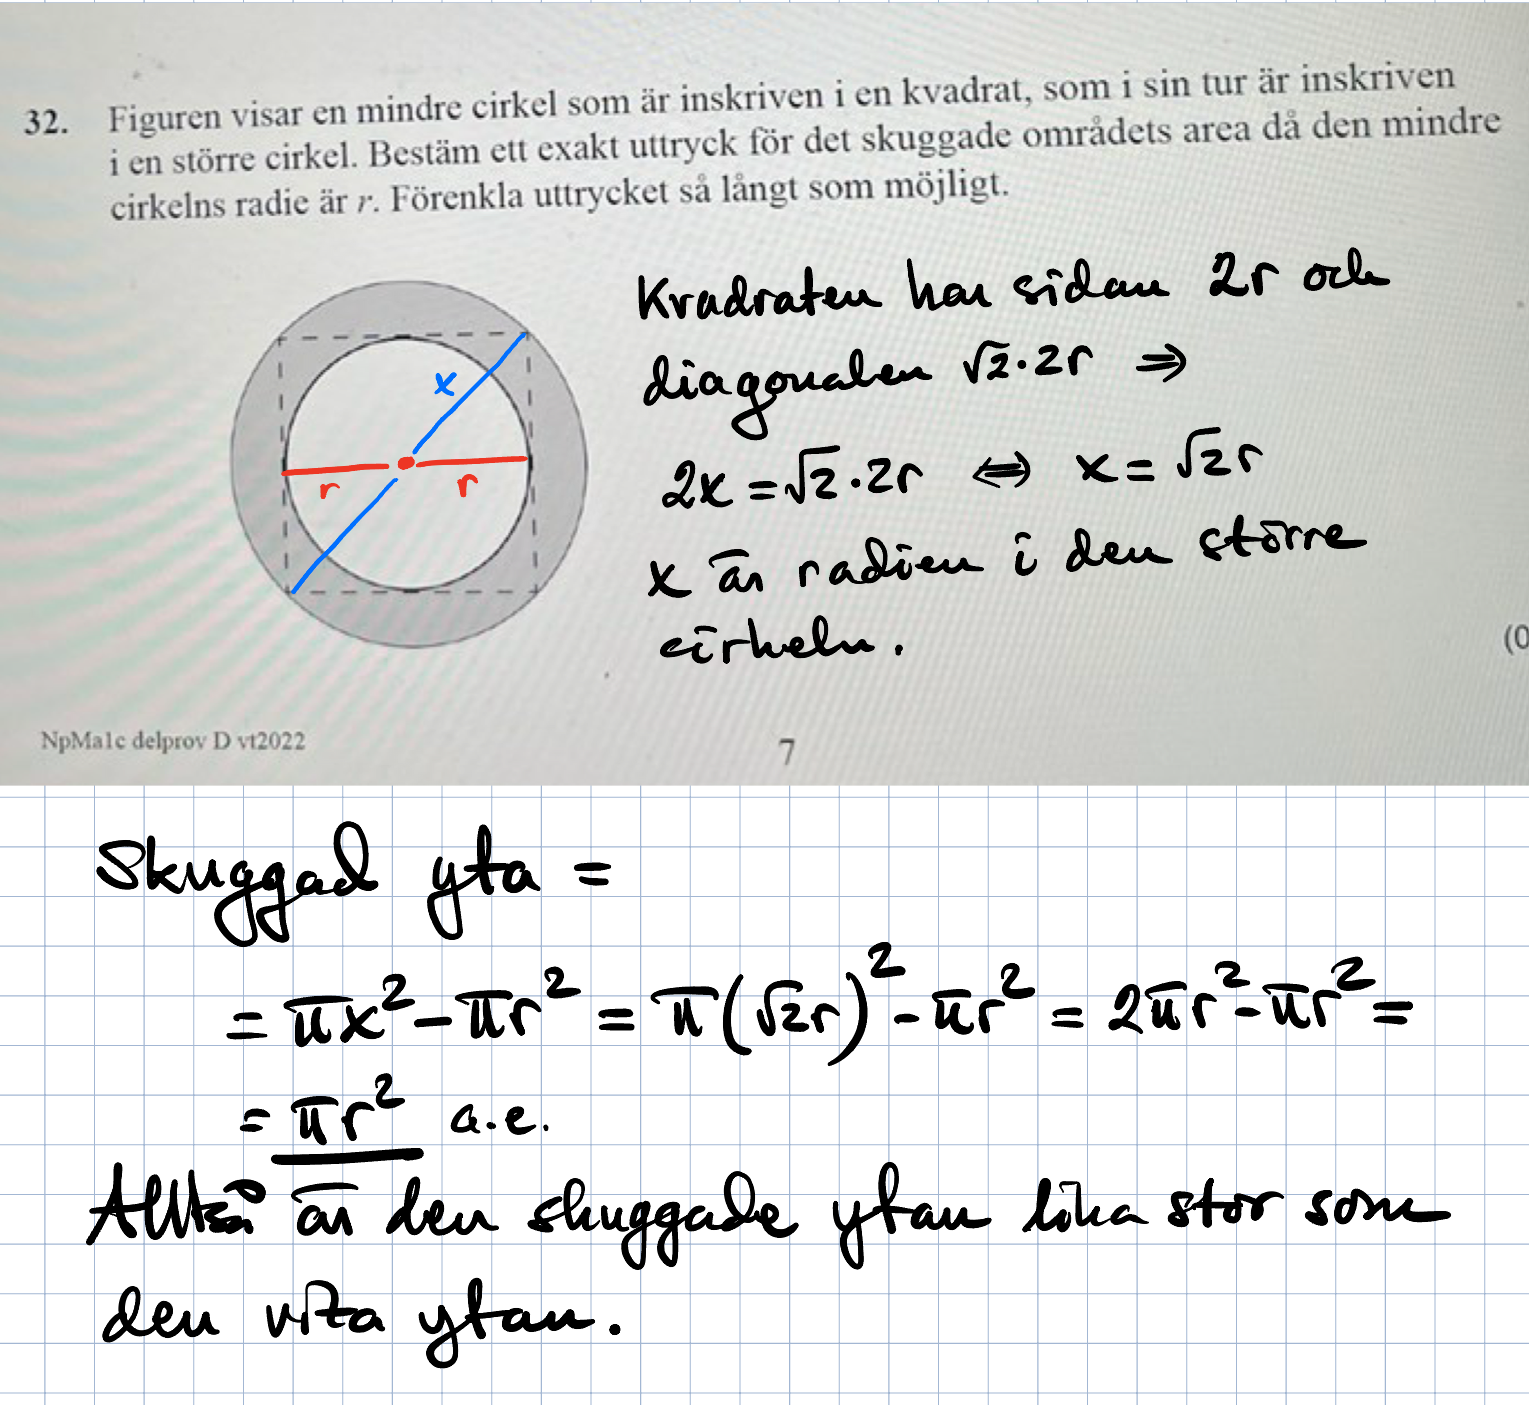 32. Figuren visar en mindre cirkel som är inskriven i en kvadrat, som i sin tur är inskriven
i en större cirkel. Bestäm ett exakt uttryck för det skuggade områdets area då den mindre
cirkelns radie är r. Förenkla uttrycket så långt som möjligt.
x
r r
Kvadraten har sidan 2r och
diagonalen √2·2r ⇒
2x = √2·2r ⇔ x = √2r
x är radien i den större
cirkeln.
(0
NpMa1c delprov D vt2022
7
Skuggad yta =
= πx² - πr² = π(√2r)² - πr² = 2πr² - πr² =
= πr² a.e.
Alltså är den skuggade ytan lika stor som
den vita ytan.